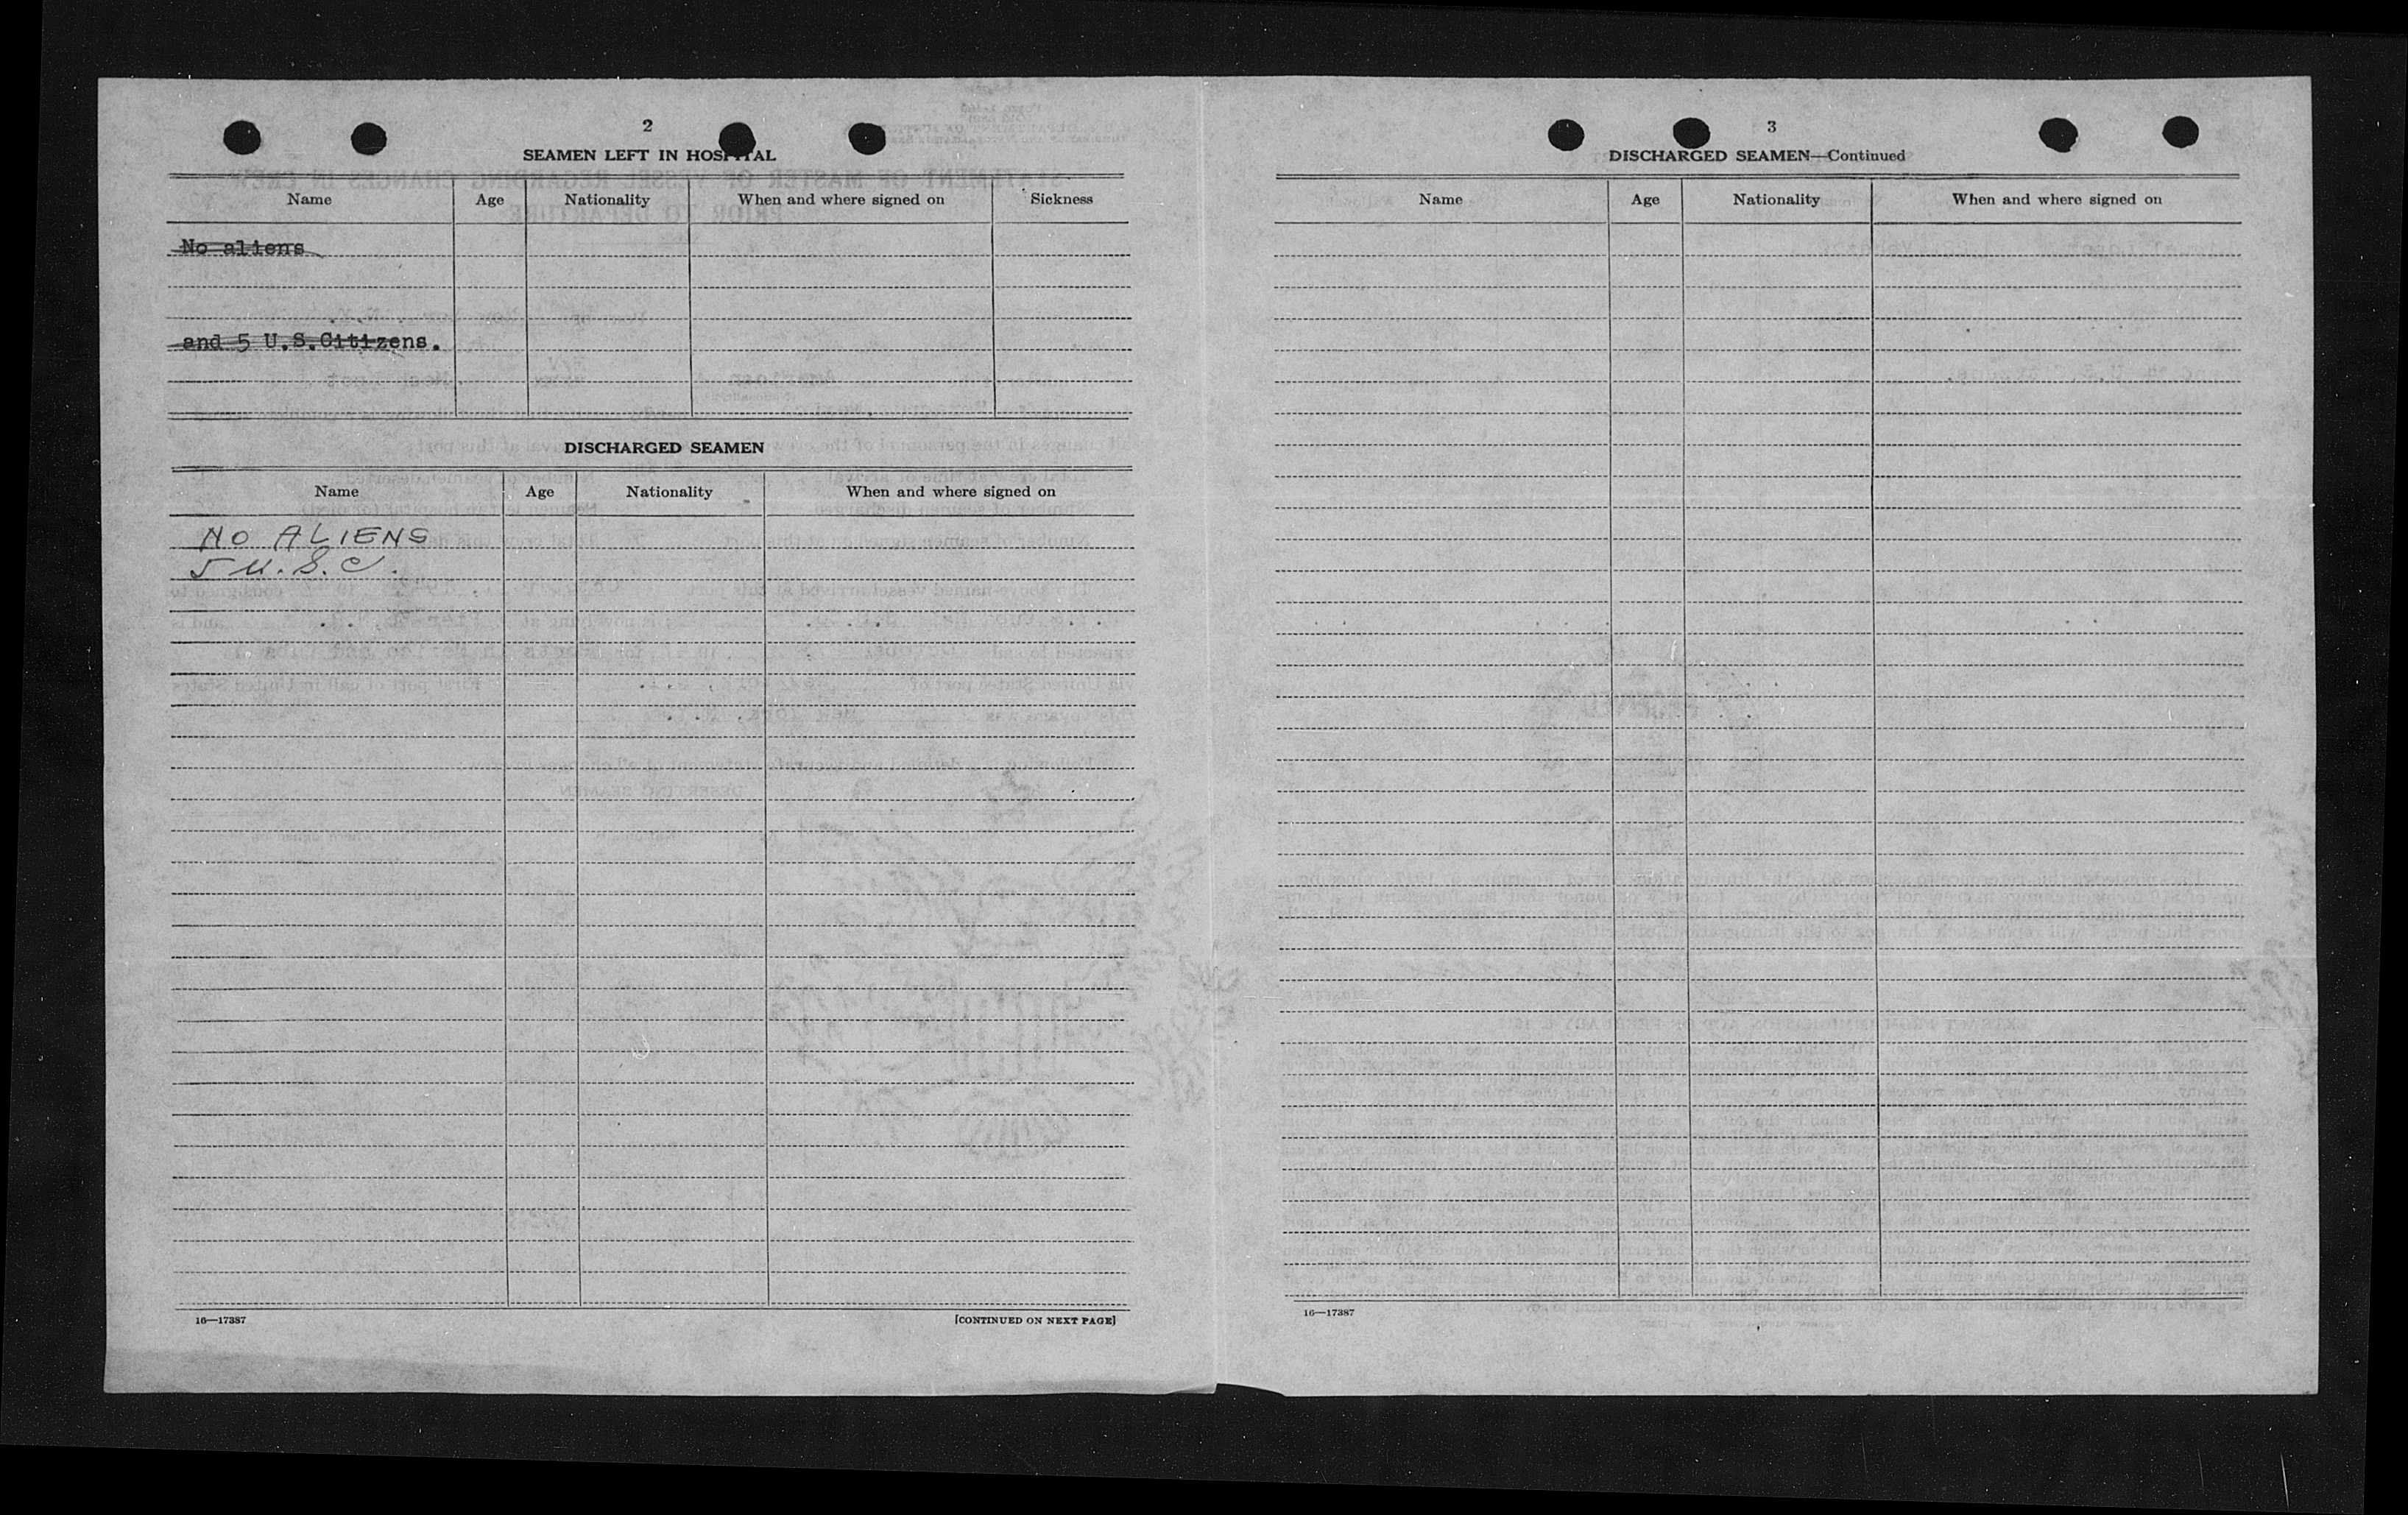 2
SEAMEN LEFT IN HOSPITAL
Name Age Nationality When and where signed on Sickness
No aliens
and 5 U.S.Citizens.
DISCHARGED SEAMEN
Name Age Nationality When and where signed on
NO ALIENS
5 U.S.C.
16—17387 [CONTINUED ON NEXT PAGE]
3
DISCHARGED SEAMEN—Continued
Name Age Nationality When and where signed on
16—17387